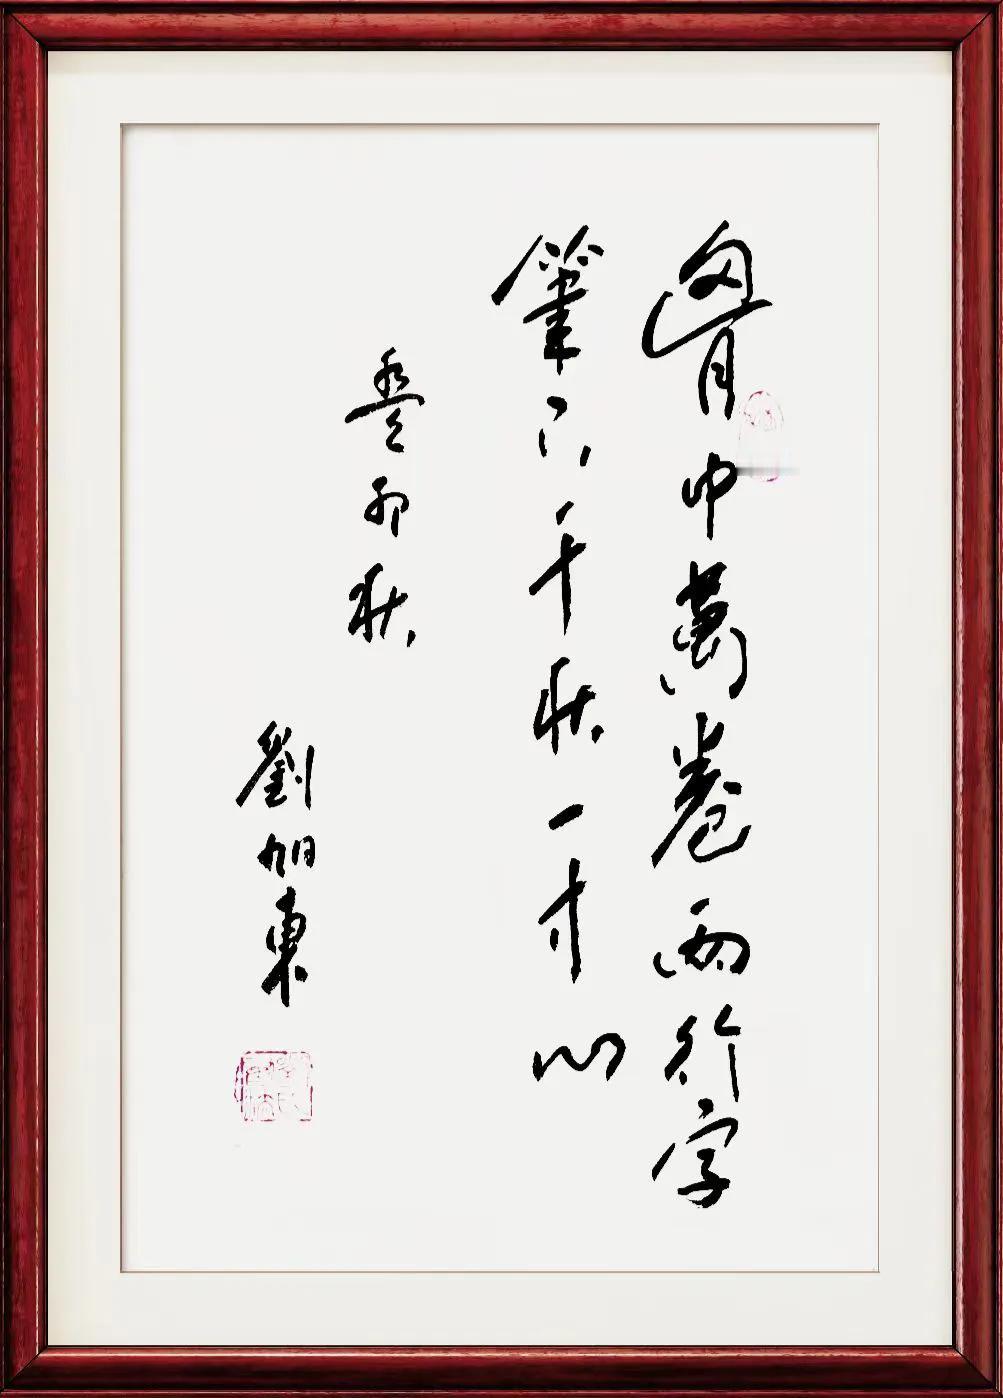 胷中萬卷兩行字
筆下千秋一寸心
癸卯秋
劉旭東